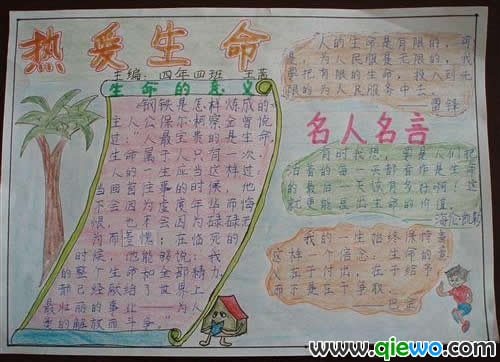 热爱生命
主编:四年四班 王茜
生命的意义
《钢铁是怎样炼成的》
主人公保尔·柯察金曾说
过:"人最宝贵的是生命,
生命属于人只有一次。
人的一生应当这样
当回首往事的时候,他
不会因为虚度年华而悔
恨,也不会因为碌碌无
为而羞愧;在临死的
时候,他能够说:"我
的整个生命和全部精力,
都已经献给了世界上
最壮丽的事业 为人
类的解放而斗争。"
人的生命是有限的,可
是,为人民服务是无限的,我
要把有限的生命,投入到无
限的为人民服务中去。
雷锋
名人名言
有时我想,要是人们把
活着的每一天都看作是生命
的最后一天该有多好啊!这
就更能显出生命的价值。
海伦·凯勒
我的一生始终保持着
这样一个信念:生命的意义
在于付出,在于给予
而不是在于争取
巴金
www.qiewo.com